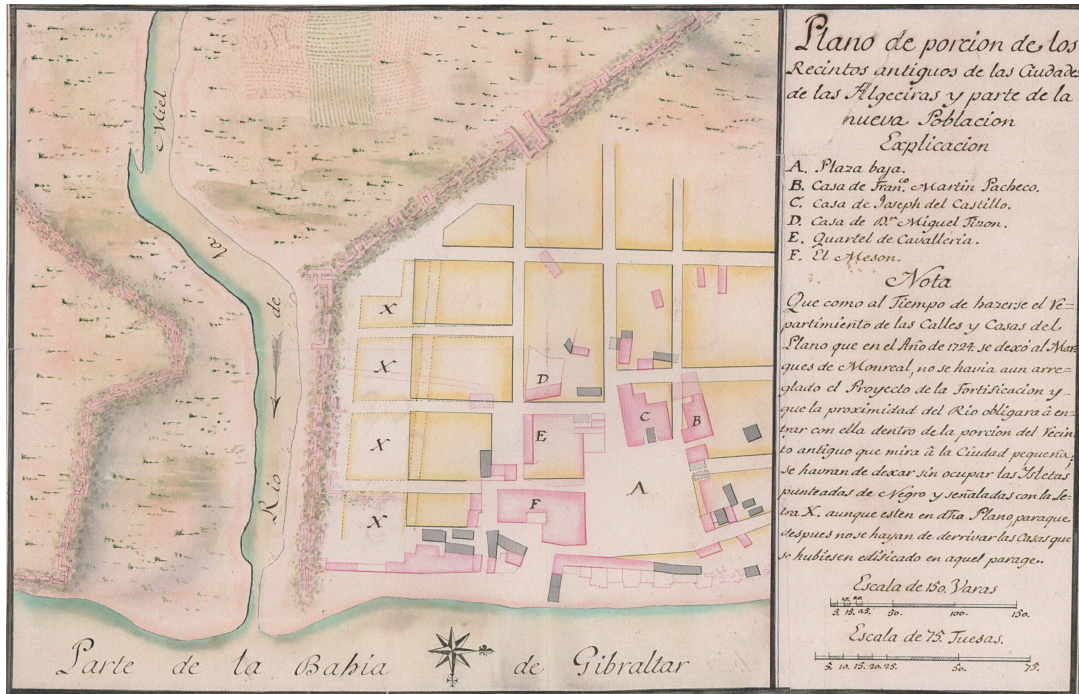 Plano de porcion de los
Recintos antiguos de las Ciudades
de las Algeciras y parte de la
nueva Poblacion
Explicacion
A. Plaza baja.
B. Casa de Fran.co Martin Pacheco.
C. Casa de Joseph del Castillo.
D. Casa de D.n Miguel Tizon.
E. Quartel de Cavalleria.
F. El Meson.
Nota
Que como al Tiempo de hazerse el Re=
partimiento de las Calles y Casas del
Plano que en el Año de 1724. se dexó al Mar
ques de Monreal, no se havia aun arre=
glado el Proyecto de la Fortificacion y
que la proximidad del Rio obligara à en=
trar con ella dentro de la porcion del Recin
to antiguo que mira à la Ciudad pequeña,
se havran de dexar sin ocupar las Isletas
punteadas de Negro y señaladas con la Le=
tra X. aunque estèn en dha Plano, paraque
despues no se hayan de derrivar las Casas que
se hubiesen edificado en aquel parage..
Escala de 150. Varas
5. 15. 25. 50. 100. 150
Escala de 75. Tuesas.
5. 10. 15. 20. 25. 50. 75.
Rio de la Miel
X
X
X
X
D
E
F
C
B
A
Parte de la Bahia de Gibraltar